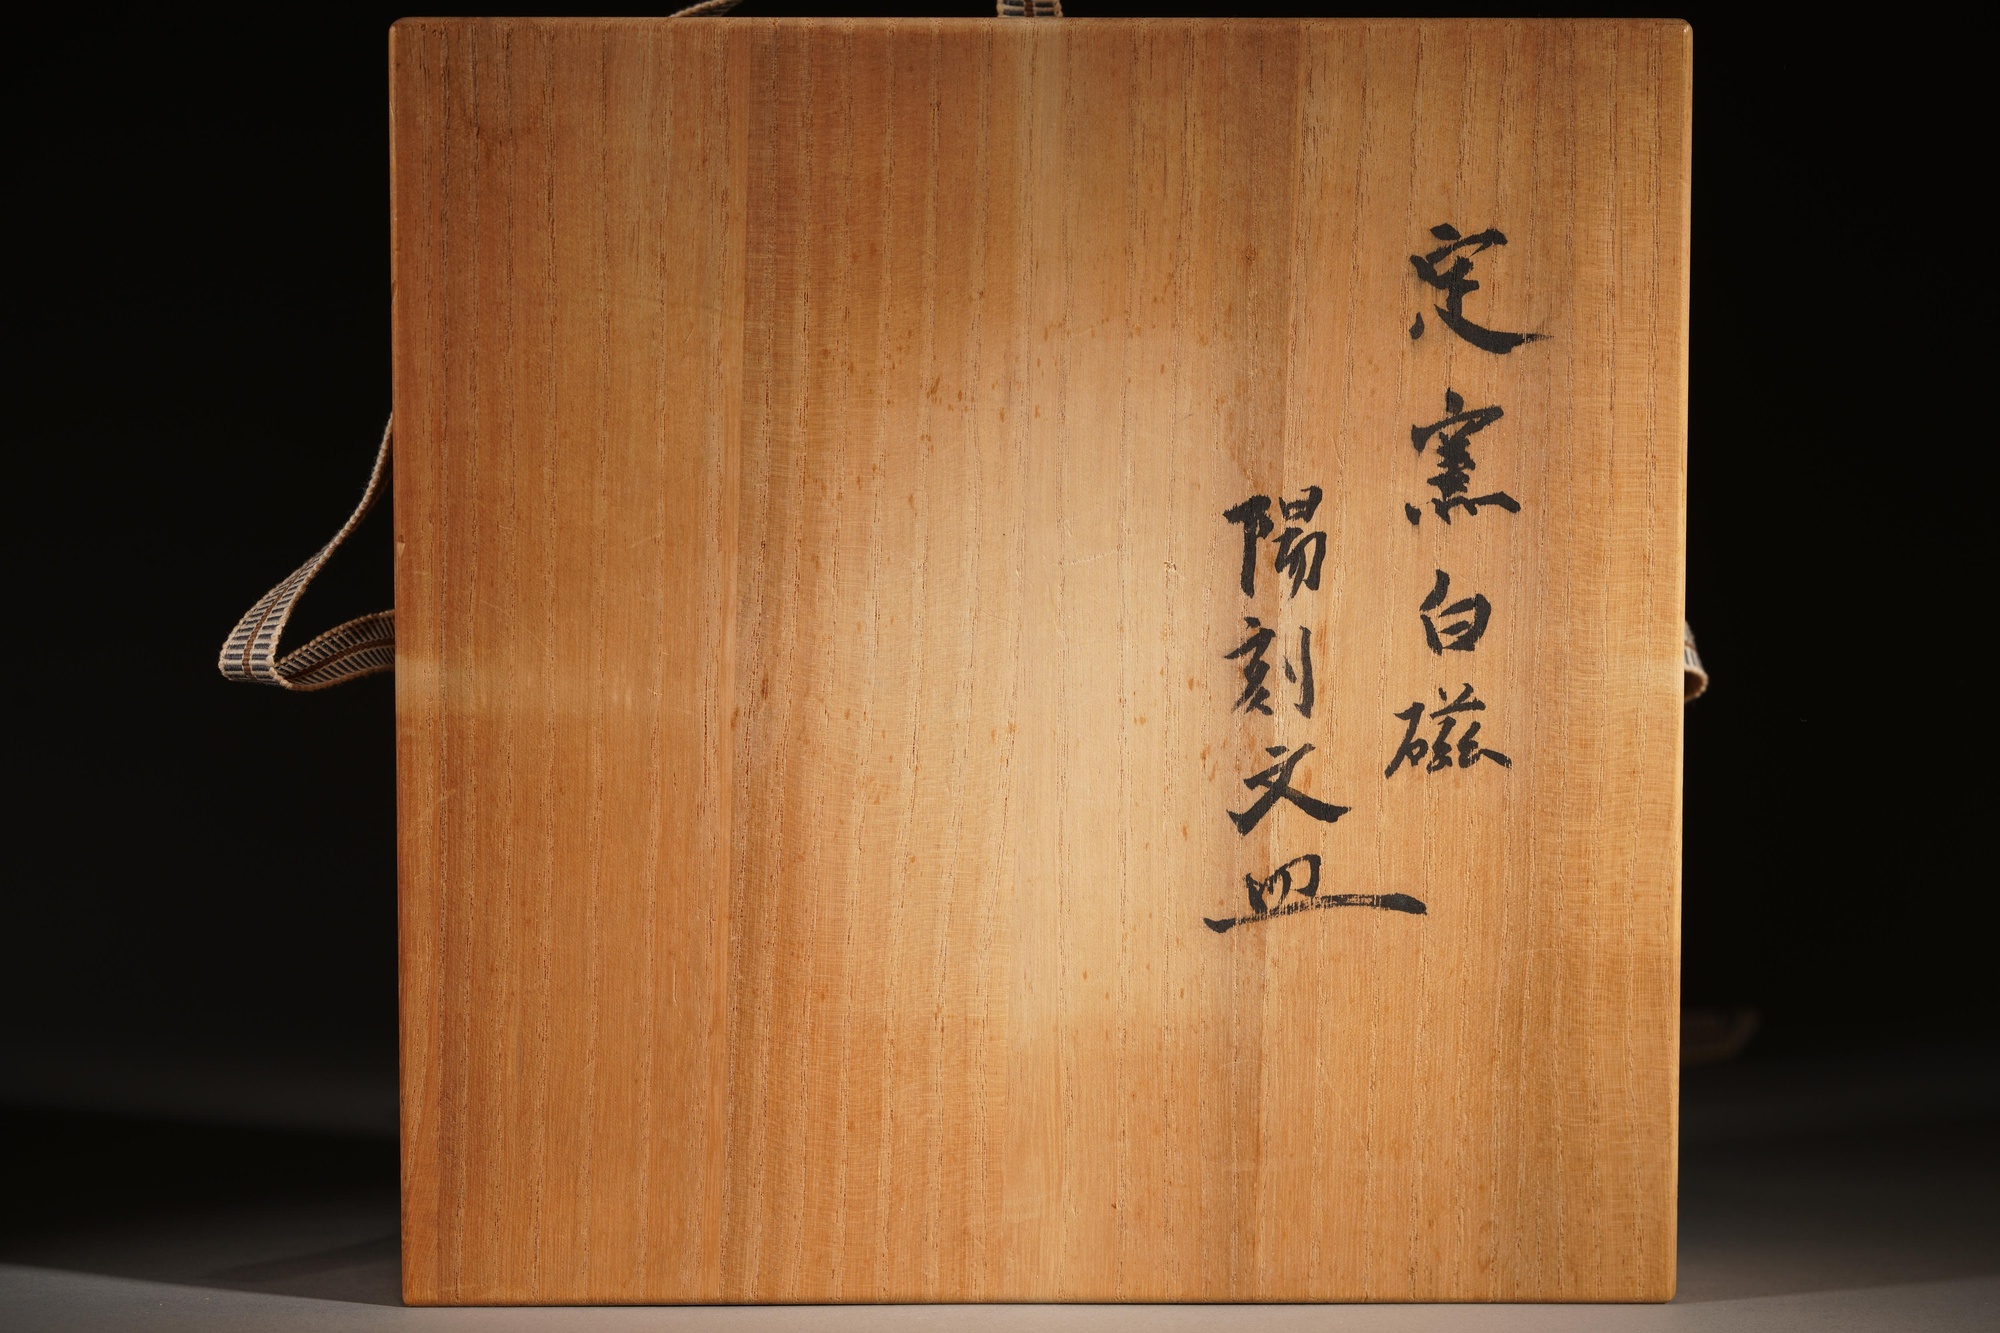 定窯白磁
陽刻文皿